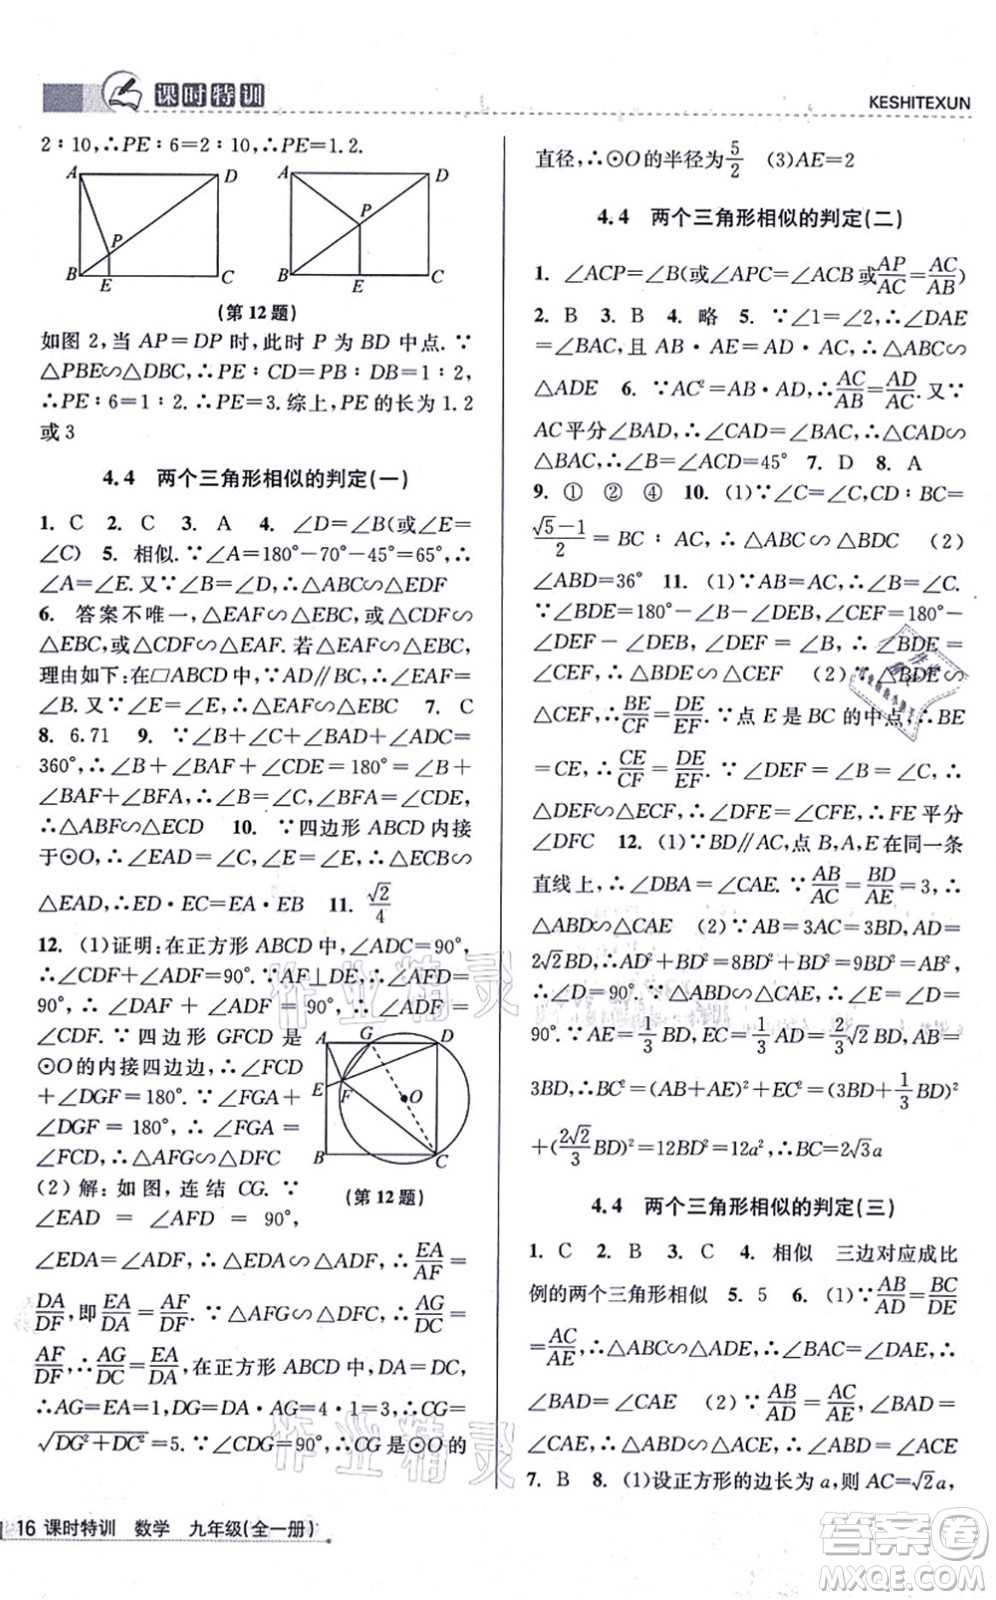 课时特训
KESHITEXUN
2∶10,∴PE∶6=2∶10,∴PE=1.2.
A D A D
P P
B E C B E C
(第12题)
如图 2,当 AP=DP 时,此时 P 为 BD 中点.∵
△PBE∽△DBC,∴PE∶CD=PB∶DB=1∶2,
∴PE∶6=1∶2.∴PE=3.综上,PE的长为1.2
或3
4.4 两个三角形相似的判定(一)
1. C 2. C 3. A 4. ∠D=∠B(或∠E=
∠C) 5. 相似.∵∠A=180°-70°-45°=65°,∴
∠A=∠E.又∵∠B=∠D,∴△ABC∽△EDF
6. 答案不唯一,△EAF∽△EBC,或△CDF∽△
EBC,或△CDF∽△EAF.若△EAF∽△EBC,
理由如下:在▱ABCD中,∵AD∥BC,∴∠EAF=
∠B.又∵∠E=∠E,∴△EAF∽△EBC 7. C
8. 6.71 9. ∵∠B+∠C+∠BAD+∠ADC=
360°,∴∠B+∠BAF+∠CDE=180°=∠B+
∠BAF+∠BFA,∴∠B=∠C,∠BFA=∠CDE,
∴△ABF∽△ECD 10. ∵四边形 ABCD 内接
于⊙O,∴∠EAD=∠C,∠E=∠E,∴△EBC∽
△EAD,∴ED·EC=EA·EB 11. √2/4
12. (1)证明:在正方形 ABCD 中,∠ADC=90°,
∴∠CDF+∠ADF=90°.∵AF⊥DE,∴∠AFD=
90°,∴∠DAF+∠ADF=90°,∴∠DAF=
∠CDF.∵四边形 GFCD 是
⊙O的内接四边边,∴∠FCD
+∠DGF=180°.∵∠FGA+
∠DGF=180°,∴∠FGA=
∠FCD,∴△AFG∽△DFC
A G D
E F O
B C
(第12题)
(2)解:如图,连结 CG.∵
∠EAD=∠AFD=90°,
∠EDA=∠ADF,∴△EDA∽△ADF,∴EA/AF=
DA/DF,即EA/DA=AF/DF.∵△AFG∽△DFC,∴AG/DC=
AF/DF,∴AG/DC=EA/DA,在正方形 ABCD 中,DA=DC,
∴AG=EA=1,DG=DA-AG=4-1=3,∴CG=
√(DG²+DC²)=5.∵∠CDG=90°,∴CG是⊙O的
直径,∴⊙O的半径为5/2 (3)AE=2
4.4 两个三角形相似的判定(二)
1. ∠ACP=∠B(或∠APC=∠ACB或AP/AC=AC/AB)
2. B 3. B 4. 略 5. ∵∠1=∠2,∴∠DAE
=∠BAC,且 AB·AE=AD·AC,∴△ABC∽
△ADE 6. ∵AC²=AB·AD,∴AC/AB=AD/AC.又∵
AC平分∠BAD,∴∠DAC=∠CAB,∴△DAC∽
△BAC,∴∠DAC=∠BAC=45° 7. D 8. A
9. ① ② ④ 10. (1)∵∠C=∠C,CD∶BC=
(√5-1)/2=BC∶AC,∴△ABC∽△BDC (2)
∠ABD=36° 11. (1)∵AB=AC,∴∠B=∠C.
∵∠BDE=180°-∠B-∠DEB,∠CEF=180°-
∠DEF-∠DEB,∠DEF=∠B,∴∠BDE=
∠CEF,∴△BDE∽△CEF (2)∵△BDE∽
△CEF,∴BE/CF=DE/EF.∵点 E 是 BC 的中点,∴BE
=CE,∴CE/CF=DE/EF.∵∠DEF=∠B=∠C,∴
△DEF∽△ECF,∴∠DFE=∠CFE,∴FE平分
∠DFC 12. (1)∵BD∥AC,点B,A,E在同一条
直线上,∴∠DBA=∠CAE.∵AB/AC=BD/AE=3,∴
△ABD∽△CAE (2)∵AB=3AC=3BD,AD=
2√2BD,∴AD²+BD²=8BD²+BD²=9BD²=AB²,
∴∠D=90°.∵△ABD∽△CAE,∴∠E=∠D=
90°.∵AE=1/3BD,EC=1/3AD=2/3√2BD,AB=
3BD,∴BC²=(AB+AE)²+EC²=(3BD+1/3BD)²
+(2√2/3BD)²=12BD²=12a²,∴BC=2√3a
4.4 两个三角形相似的判定(三)
1. C 2. B 3. C 4. 相似 三边对应成比
例的两个三角形相似 5. 5 6. (1)∵AB/AD=BC/DE
=AC/AE,∴△ABC∽△ADE,∴∠BAC=∠DAE,∴
∠BAD=∠CAE (2)∵AB/AD=AC/AE,∴AB/AC=AD/AE.
∵∠BAD=∠CAE,∴△ABD∽△ACE
7. B 8. (1)设正方形的边长为a,则 AC=√2a,
16 课时特训 数学 九年级(全一册)
作业精灵
作业精灵
作业帮
MXQE.COM